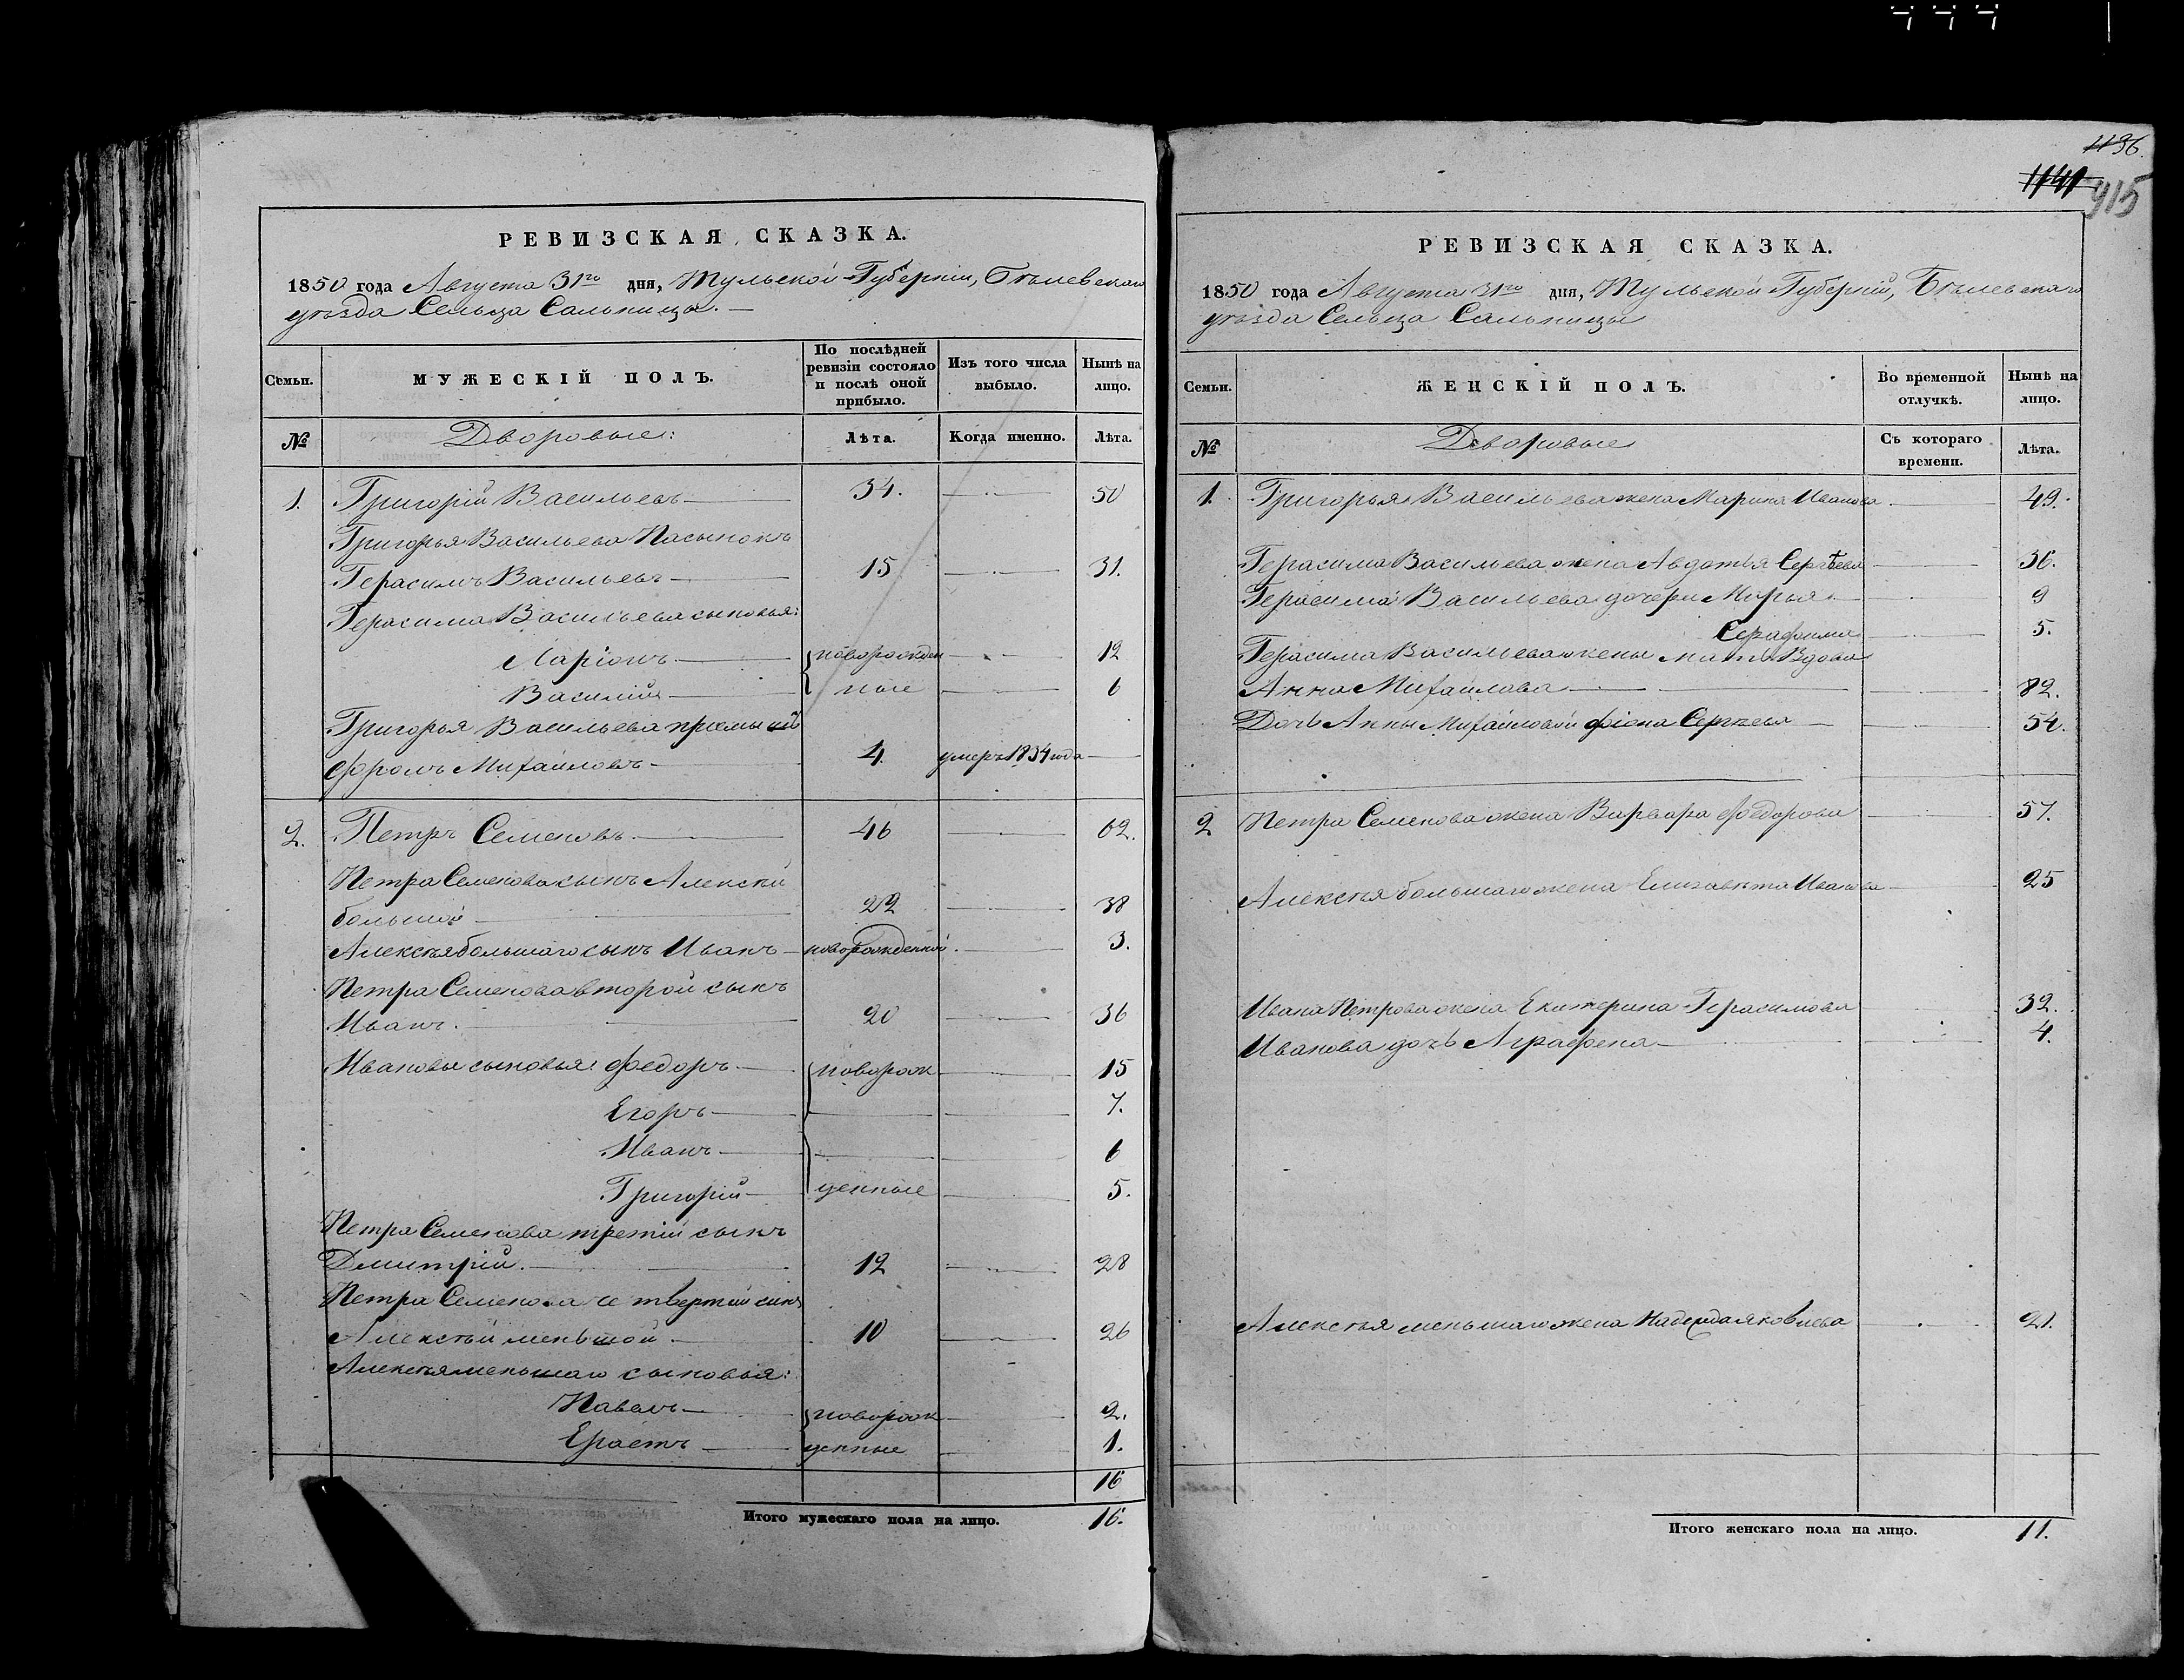 1136.
1141 915
РЕВИЗСКАЯ СКАЗКА.
1850 года Августа 31го дня, Тульской Губерніи, Бѣлевскаго
уѣзда Сельца Сальницы.
Семьи. МУЖЕСКІЙ ПОЛЪ. По послѣдней ревизіи состояло и послѣ оной прибыло. Изъ того числа выбыло. Нынѣ на лицо.
№ Дворовые: Лѣта. Когда именно. Лѣта.
1. Григорій Васильевъ 34. 50
Григорья Васильева Пасынокъ
Герасимъ Васильевъ 15 31.
Герасима Васильева сыновья:
Ларіонъ новорожден 12
Василій ные 6
Григорья Васильева премышъ
Фролъ Михайловъ 4. умеръ 1834 года
2. Петръ Семеновъ 46 62.
Петра Семенова сынъ Алексѣй
большой 22 38
Алексѣя большаго сынъ Иванъ новорожденной 3.
Петра Семенова второй сынъ
Иванъ. 20 36
Ивановы сыновья: Федоръ новорож 15
Егоръ 7.
Иванъ 6
Григорій денные 5.
Петра Семенова третій сынъ
Дмитрій. 12 28
Петра Семенова четвертый сынъ
Алексѣй меньшой 10 26
Алексѣя меньшаго сыновья:
Павелъ новорож 2.
Ерастъ денные 1.
16
Итого мужескаго пола на лицо. 16.
РЕВИЗСКАЯ СКАЗКА.
1850 года Августа 31го дня, Тульской Губерніи, Бѣлевскаго
уѣзда Сельца Сальницы
Семьи. ЖЕНСКІЙ ПОЛЪ. Во временной отлучкѣ. Нынѣ на лицо.
№ Дворовые Съ котораго времени. Лѣта.
1. Григорья Васильева жена Марина Иванова 49.
Герасима Васильева жена Авдотья Сергѣева 36.
Герасима Васильева дочери Марья 9
Серафима 5.
Герасима Васильева жены мать Вдова
Анна Михайлова 82.
Дочь Анны Михайловой Фіона Сергѣева 54.
2 Петра Семенова жена Варвара Федорова 57.
Алексѣя большаго жена Елизавѣта Иванова 25
Ивана Петрова жена Екатерина Герасимова 32.
Иванова дочь Аграфена 4.
Алексѣя меньшаго жена Надежда Яковлева 21.
Итого женскаго пола на лицо. 11.